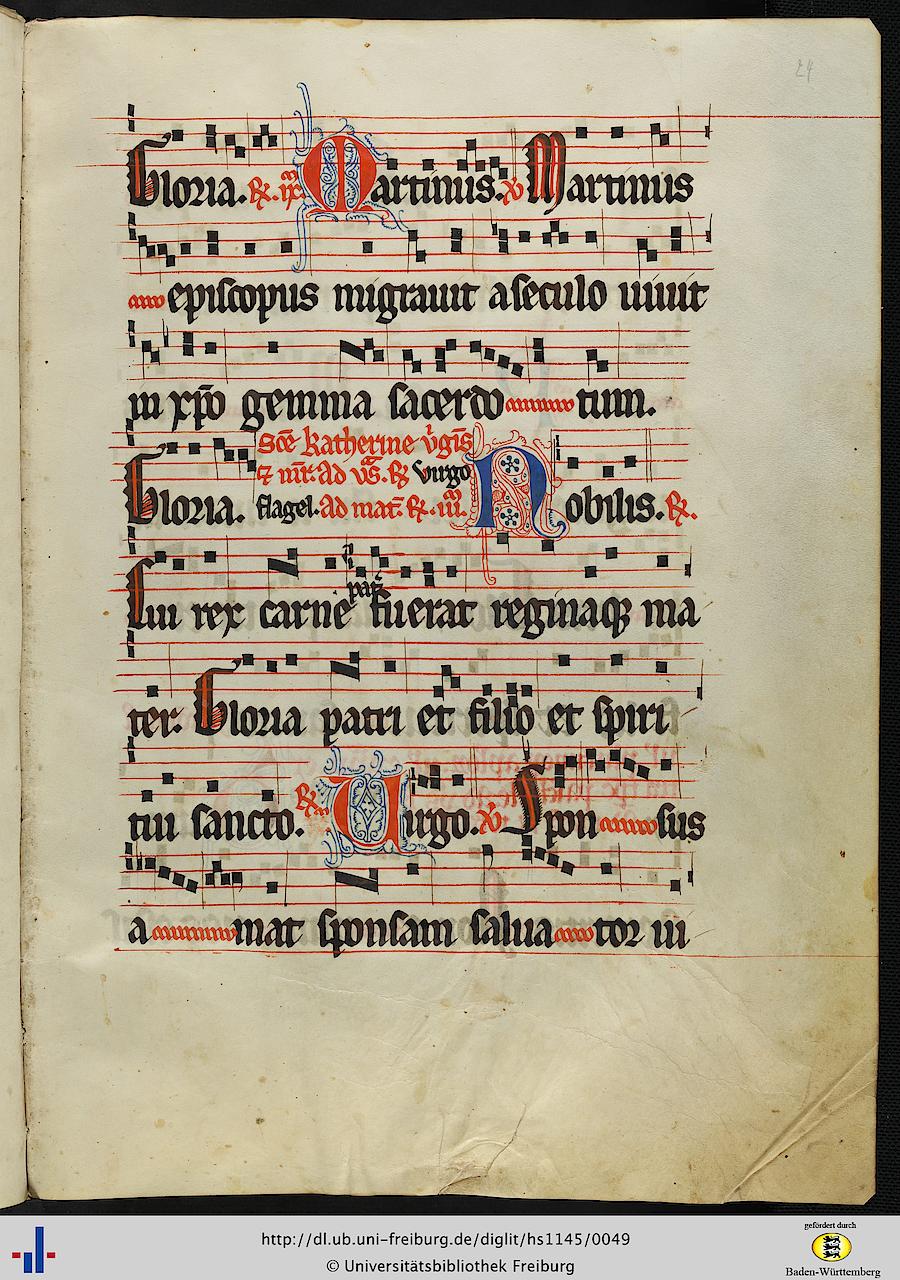 24
Gloria. R. ix. Martinus. v Martinus
episcopus migrauit a seculo uiuit
in xp̄o gemma sacerdo tum.
Sc̄e katherine v̓gīs
⁊ mr̄. ad vs̄. R virgo
Gloria. flagel. Ad mat̄. R. iii. Nobilis. R.
pat̄
Cui rex carne fuerat reginaqꝫ ma
ter. Gloria patri et filio et spiri
tui sancto. R Uirgo. v Spon sus
a mat sponsam salua tor in
http://dl.ub.uni-freiburg.de/diglit/hs1145/0049
© Universitätsbibliothek Freiburg
gefördert durch
Baden-Württemberg